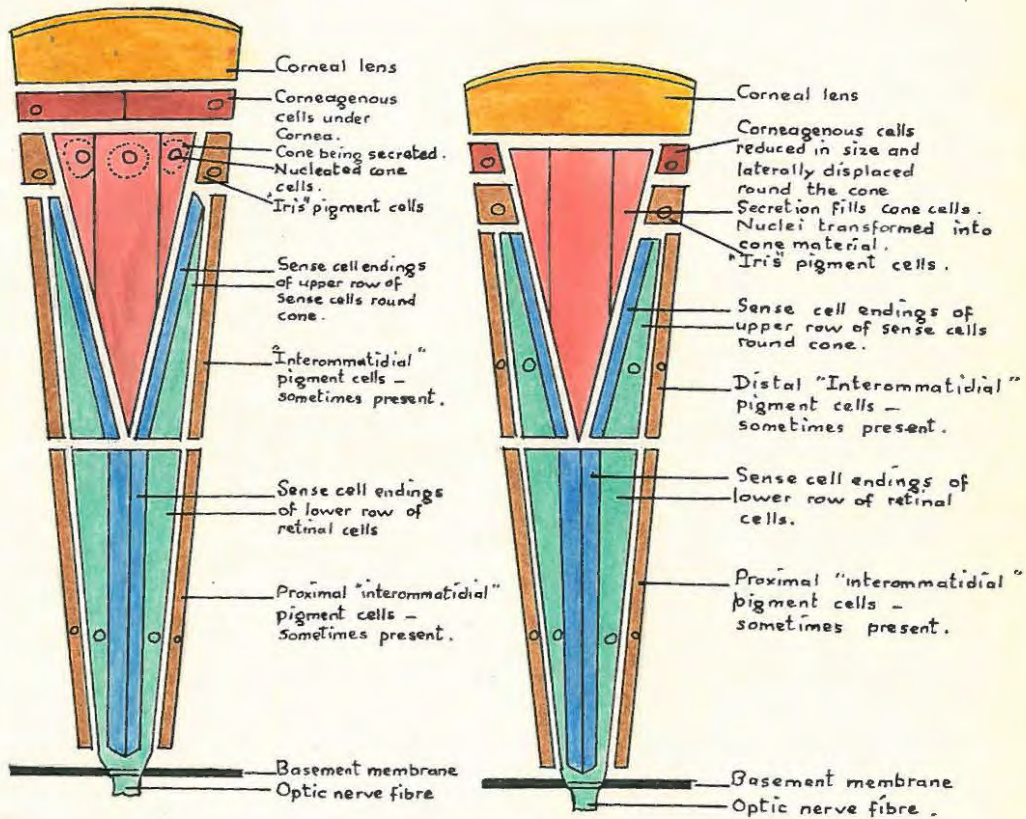 Corneal lens
Corneagenous
cells under
Cornea.
Cone being secreted.
Nucleated cone
cells.
"Iris" pigment cells
Sense cell endings
of upper row of
Sense cells round
cone.
"Interommatidial"
pigment cells –
sometimes present.
Sense cell endings
of lower row of
retinal cells
Proximal "interommatidial"
pigment cells –
sometimes present.
Basement membrane
Optic nerve fibre
Corneal lens
Corneagenous cells
reduced in size and
laterally displaced
round the cone
Secretion fills cone cells.
Nuclei transformed into
cone material.
"Iris" pigment cells.
Sense cell endings of
upper row of sense cells
round cone.
Distal "Interommatidial"
pigment cells –
sometimes present.
Sense cell endings of
lower row of retinal
cells.
Proximal "interommatidial"
pigment cells –
sometimes present.
Basement membrane
Optic nerve fibre.